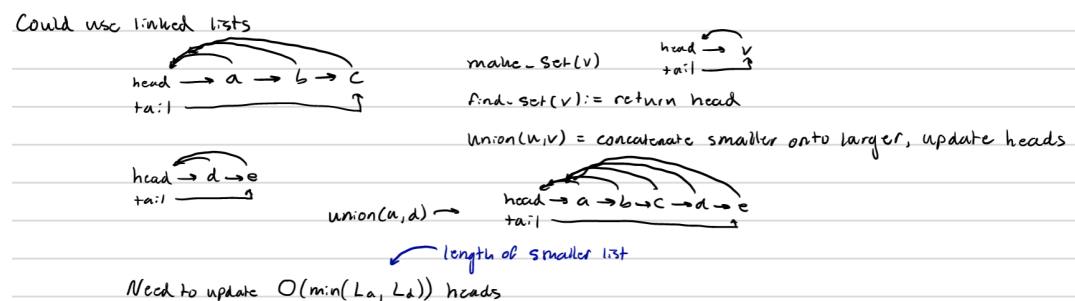 Could use linked lists
head → a → b → c
tail
make_set(v)
head → v
tail
find_set(v) := return head
union(u,v) = concatenate smaller onto larger, update heads
head → d → e
tail
union(a,d) →
head → a → b → c → d → e
tail
length of smaller list
Need to update O(min(La, Ld)) heads